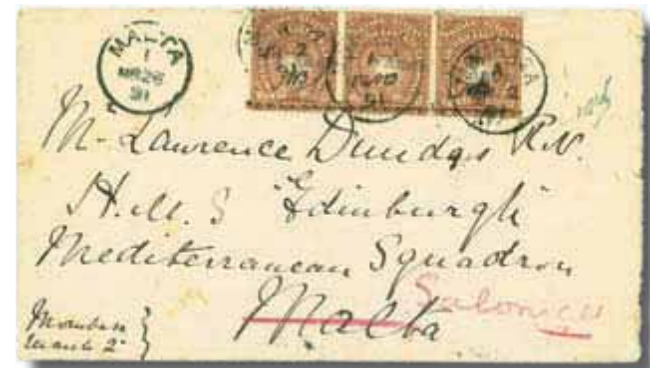 MALTA
1
MR 26
91
Mr Lawrence Dundas R.N.
H.M.S "Edinburgh"
Mediterranean Squadron
Malta
Salonica
Mombasa
March 2